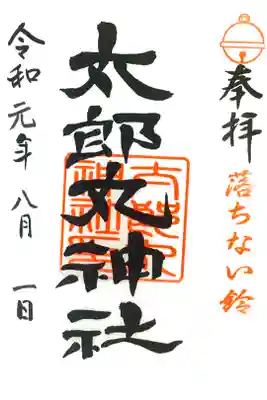 奉拝
落ちない鈴
太郎丸神社
太郎丸神社
令和元年八月一日